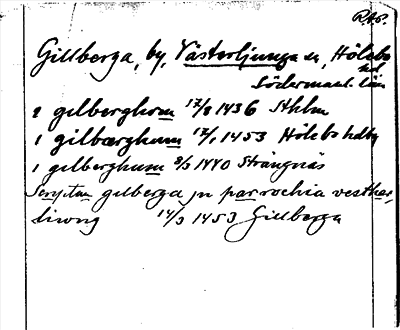 R.A.P.
Gillberga, by, Västerljunga sn, Hölebo
hd
Södermanl. län
i gilberghom 17/8 1436 Sthlm
i gilbærghum 17/1 1453 Hölebo hdtg
i gilberghum 8/3 1440 Strängnäs
Scriptum gilberga jn parrochia vesthær,
liwng 14/3 1453 Gillberga